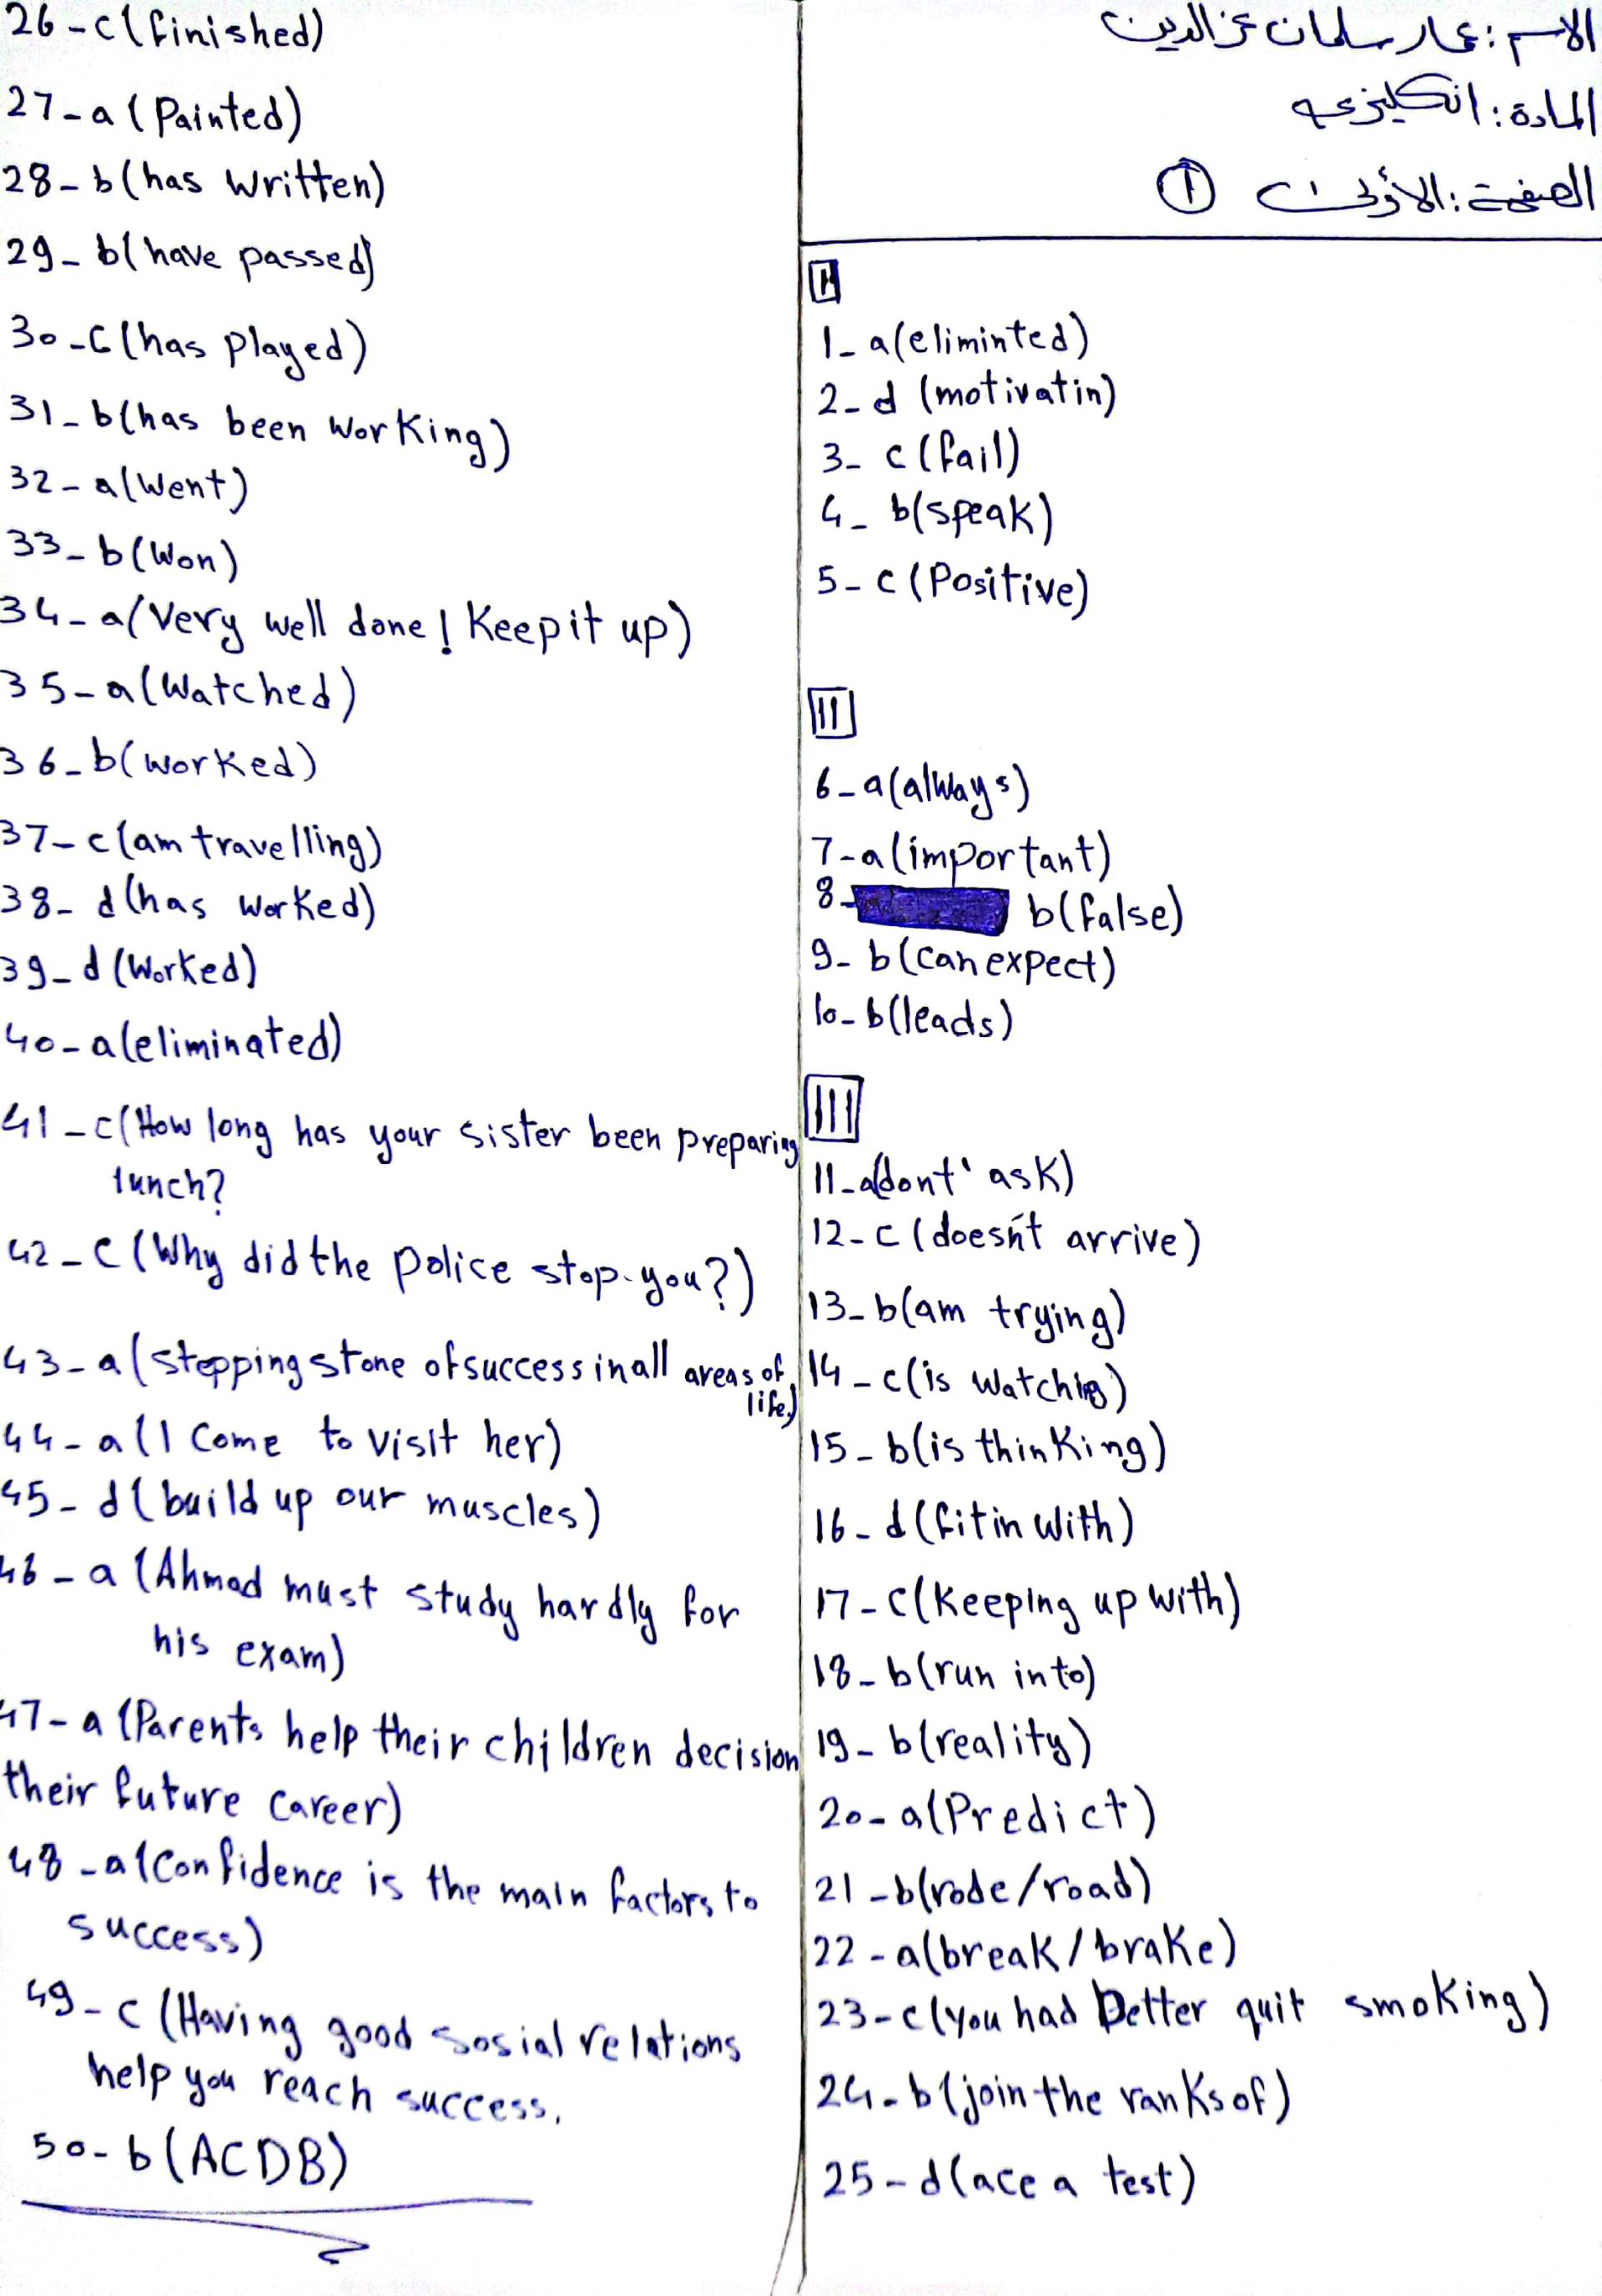 الاسم: عمار سلمان عز الدين
المادة: انكليزي
الصفحة: الأولى ①
I
1- a(eliminted)
2- d (motivatin)
3- c (fail)
4- b(speak)
5- c (Positive)
II
6- a(always)
7- a(important)
8- b(false)
9- b(can expect)
10- b(leads)
III
11- a(dont' ask)
12- c (doesn't arrive)
13- b(am trying)
14- c(is watching)
15- b(is thinking)
16- d (fit in with)
17- c(Keeping up with)
18- b(run into)
19- b(reality)
20- a(Predict)
21- b(rode/road)
22- a(break/brake)
23- c(you had better quit smoking)
24- b(join the ranks of)
25- d(ace a test)
26- c(finished)
27- a(Painted)
28- b(has written)
29- b(have passed)
30- c(has played)
31- b(has been working)
32- a(went)
33- b(won)
34- a(Very well done! Keep it up)
35- a(watched)
36- b(worked)
37- c(am travelling)
38- d(has worked)
39- d(worked)
40- a(eliminated)
41- c(How long has your sister been preparing
lunch?
42- c (Why did the police stop you?)
43- a(stepping stone of success in all areas of
life)
44- a(I come to visit her)
45- d(build up our muscles)
46- a (Ahmad must study hardly for
his exam)
47- a (Parents help their children decision
their future career)
48- a(Confidence is the main factors to
success)
49- c (Having good sosial relations
help you reach success.
50- b(ACDB)